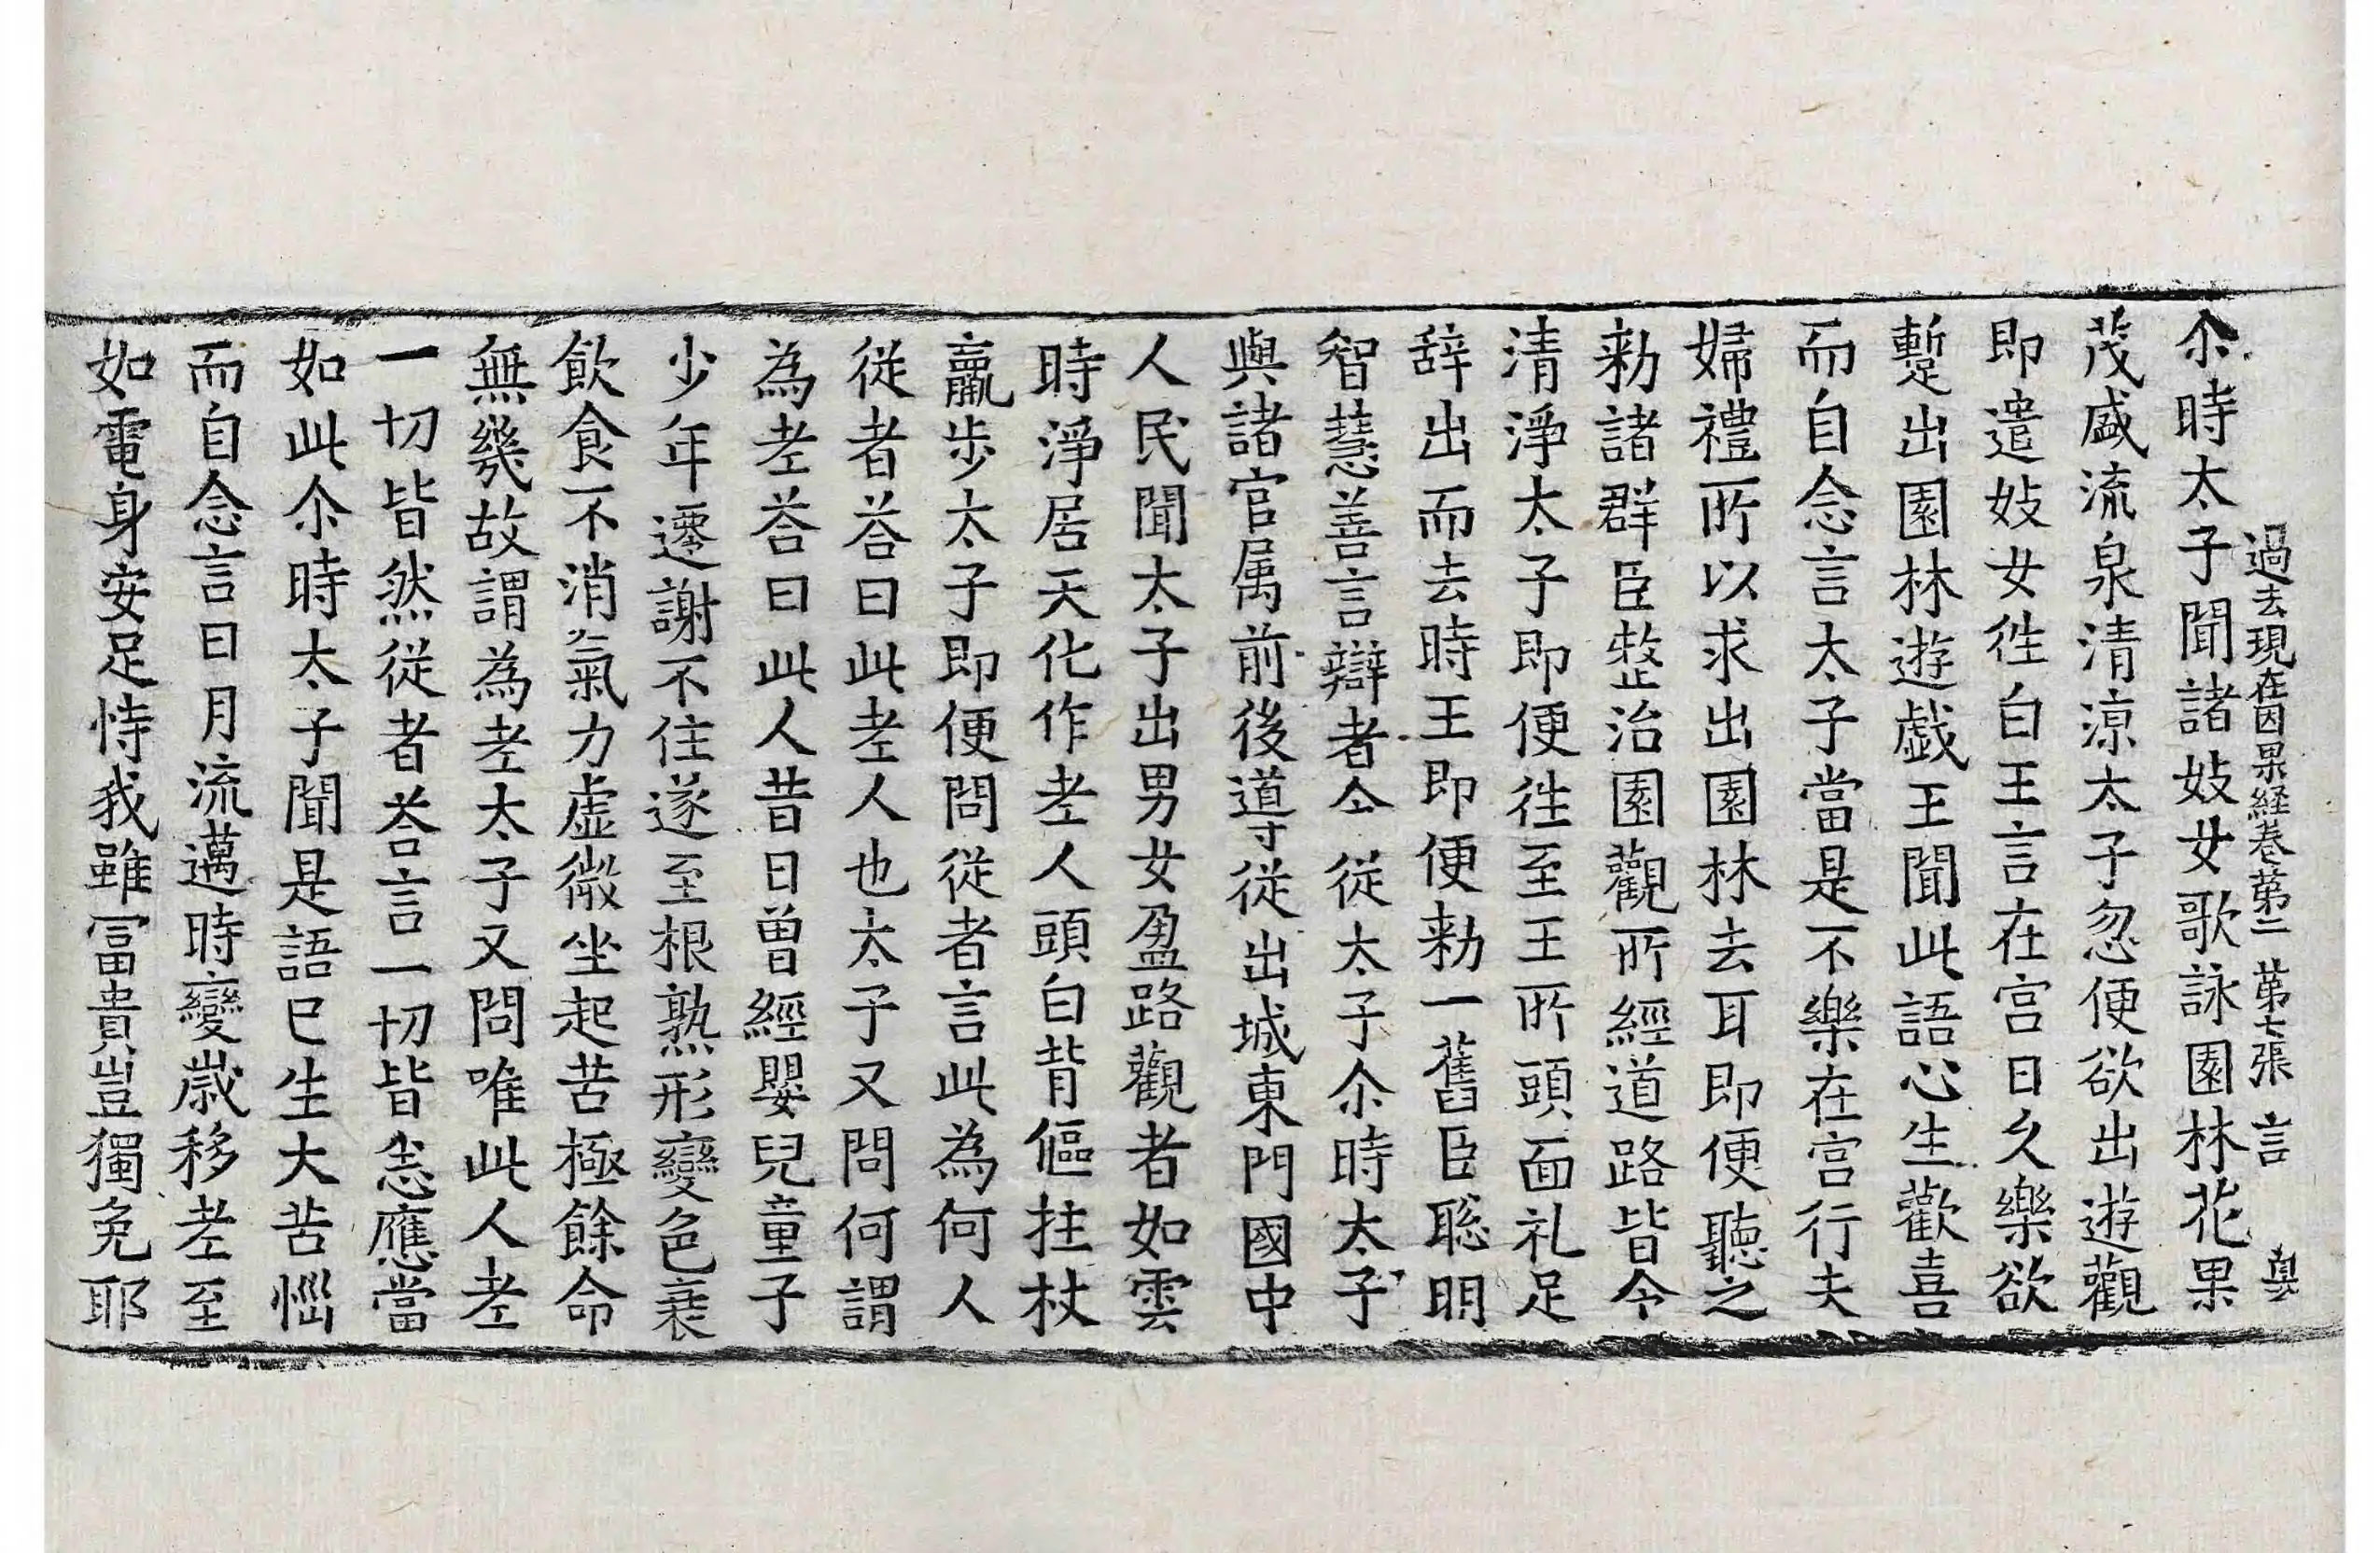 過去現在因果経卷苐二 苐七張 言
尒時太子聞諸妓女歌詠園林花果
茂盛流泉清涼太子忽便欲出遊觀
即遣妓女徃白王言在宮日久樂欲
暫出園林遊戯王聞此語心生歡喜
而自念言太子當是不樂在宮行夫
婦禮所以求出園林去耳即便聽之
勑諸群臣整治園觀所經道路皆令
清淨太子即便徃至王所頭面礼足
辞出而去時王即便勑一舊臣聡明
智慧善言辯者令從太子尒時太子
與諸官属前後導從出城東門國中
人民聞太子出男女盈路觀者如雲
時淨居天化作老人頭白背傴拄杖
羸步太子即便問從者言此為何人
從者荅曰此老人也太子又問何謂
為老荅曰此人昔日曾經嬰兒童子
少年遷謝不住遂至根熟形變色衰
飲食不消氣力虛微坐起苦極餘命
無幾故謂為老太子又問唯此人老
一切皆然從者荅言一切皆悉應當
如此尒時太子聞是語已生大苦惱
而自念言日月流邁時變歲移老至
如電身安足恃我雖冨貴豈獨免耶